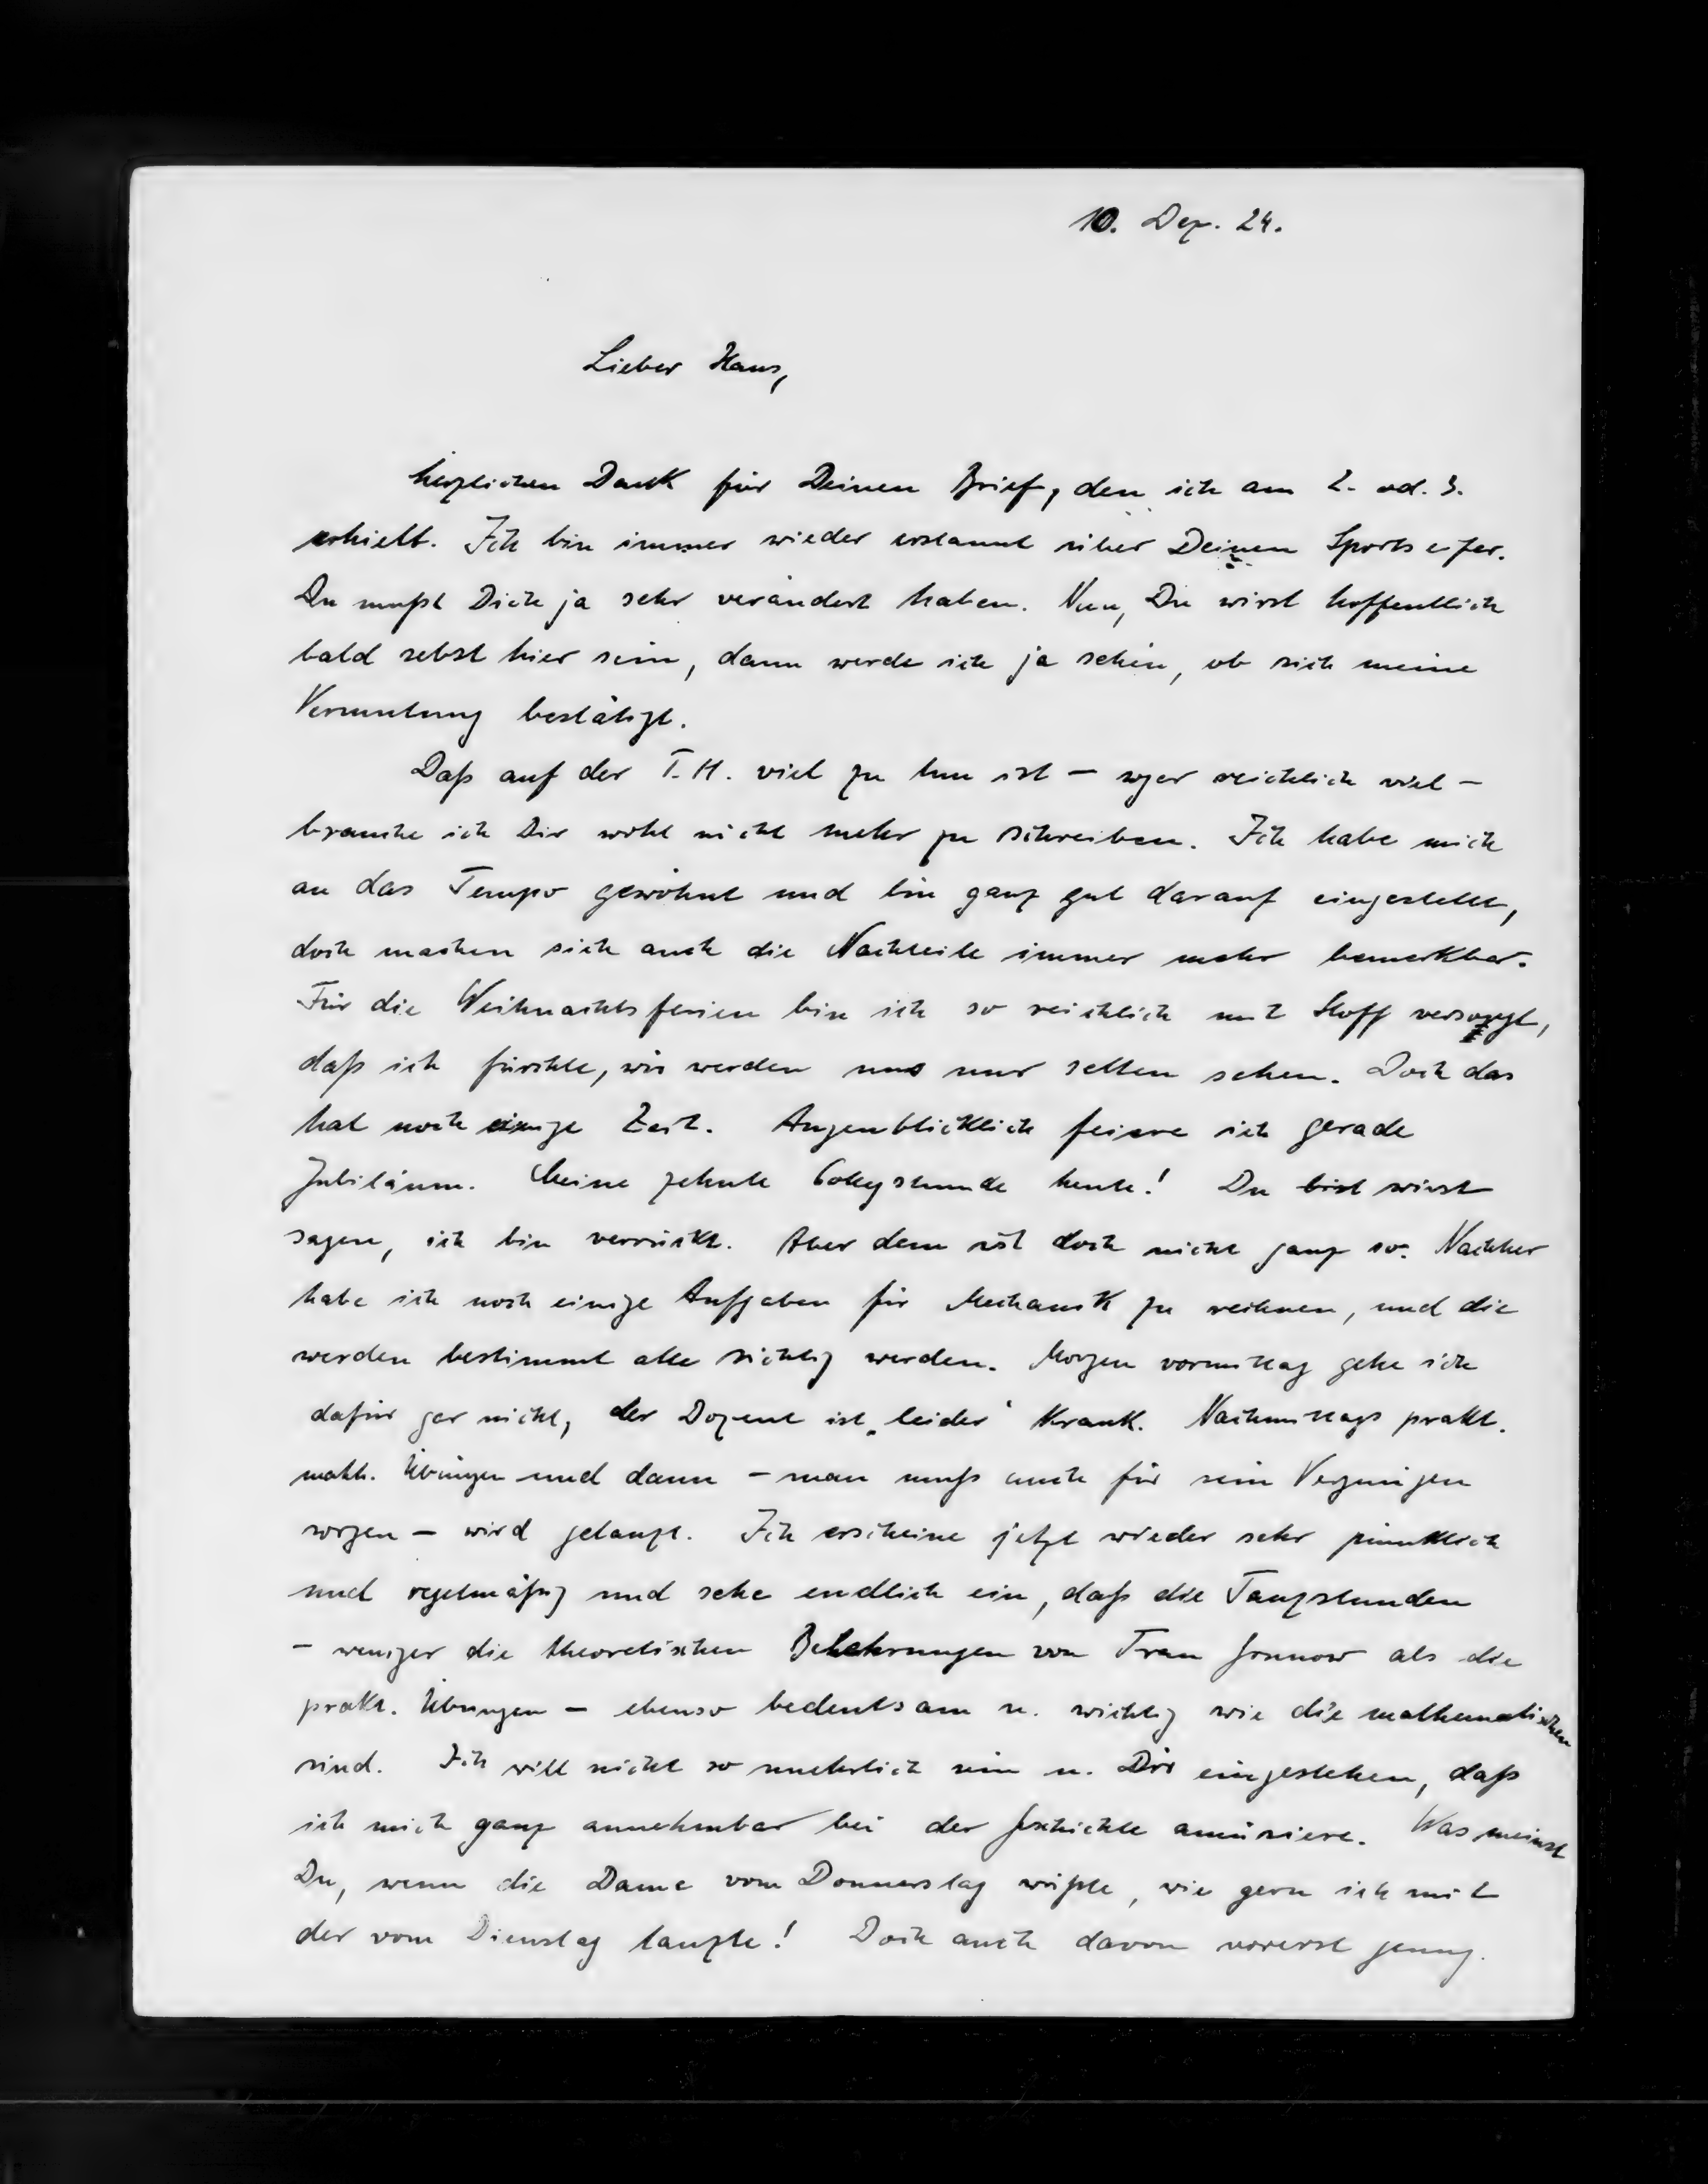 10. Dez. 24.
Lieber Hans,
herzlichen Dank für Deinen Brief, den ich am 2. od. 3.
erhielt. Ich bin immer wieder erstaunt über Deinen Sportseifer.
Du mußt Dich ja sehr verändert haben. Nun, Du wirst hoffentlich
bald selbst hier sein, dann werde ich ja sehen, ob sich meine
Vermutung bestätigt.
Daß auf der T.H. viel zu tun ist – sogar reichlich viel –
brauche ich Dir wohl nicht mehr zu schreiben. Ich habe mich
an das Tempo gewöhnt und bin ganz gut darauf eingestellt,
doch machen sich auch die Nachteile immer mehr bemerkbar.
Für die Weihnachtsferien bin ich so reichlich mit Stoff versorgt,
daß ich fürchte, wir werden uns nur selten sehen. Doch das
hat noch einige Zeit. Augenblicklich feiere ich gerade
Jubiläum. Meine zehnte Collegstunde heute! Du bist wirst
sagen, ich bin verrückt. Aber dem ist doch nicht ganz so. Nachher
habe ich noch einige Aufgaben für Mechanik zu rechnen, und die
werden bestimmt alle richtig werden. Morgen vormittag gehe ich
dafür gar nicht, der Dozent ist „leider“ krank. Nachmittags prakt.
math. Übungen und dann – man muß auch für sein Vergnügen
sorgen – wird getanzt. Ich erscheine jetzt wieder sehr pünktlich
und regelmäßig und sehe endlich ein, daß die Tanzstunden
– weniger die theoretischen Belehrungen von Frau als die
prakt. Übungen – ebenso bedeutsam u. wichtig wie die mathematischen
sind. Ich will nicht so sein u. Dir eingestehen, daß
ich mich ganz annehmbar bei der Geschichte amüsiere. Was meinst
Du, wenn die Dame vom Donnerstag wüßte, wie gern ich mit
der vom Dienstag tanzte! Doch auch davon vorerst genug.